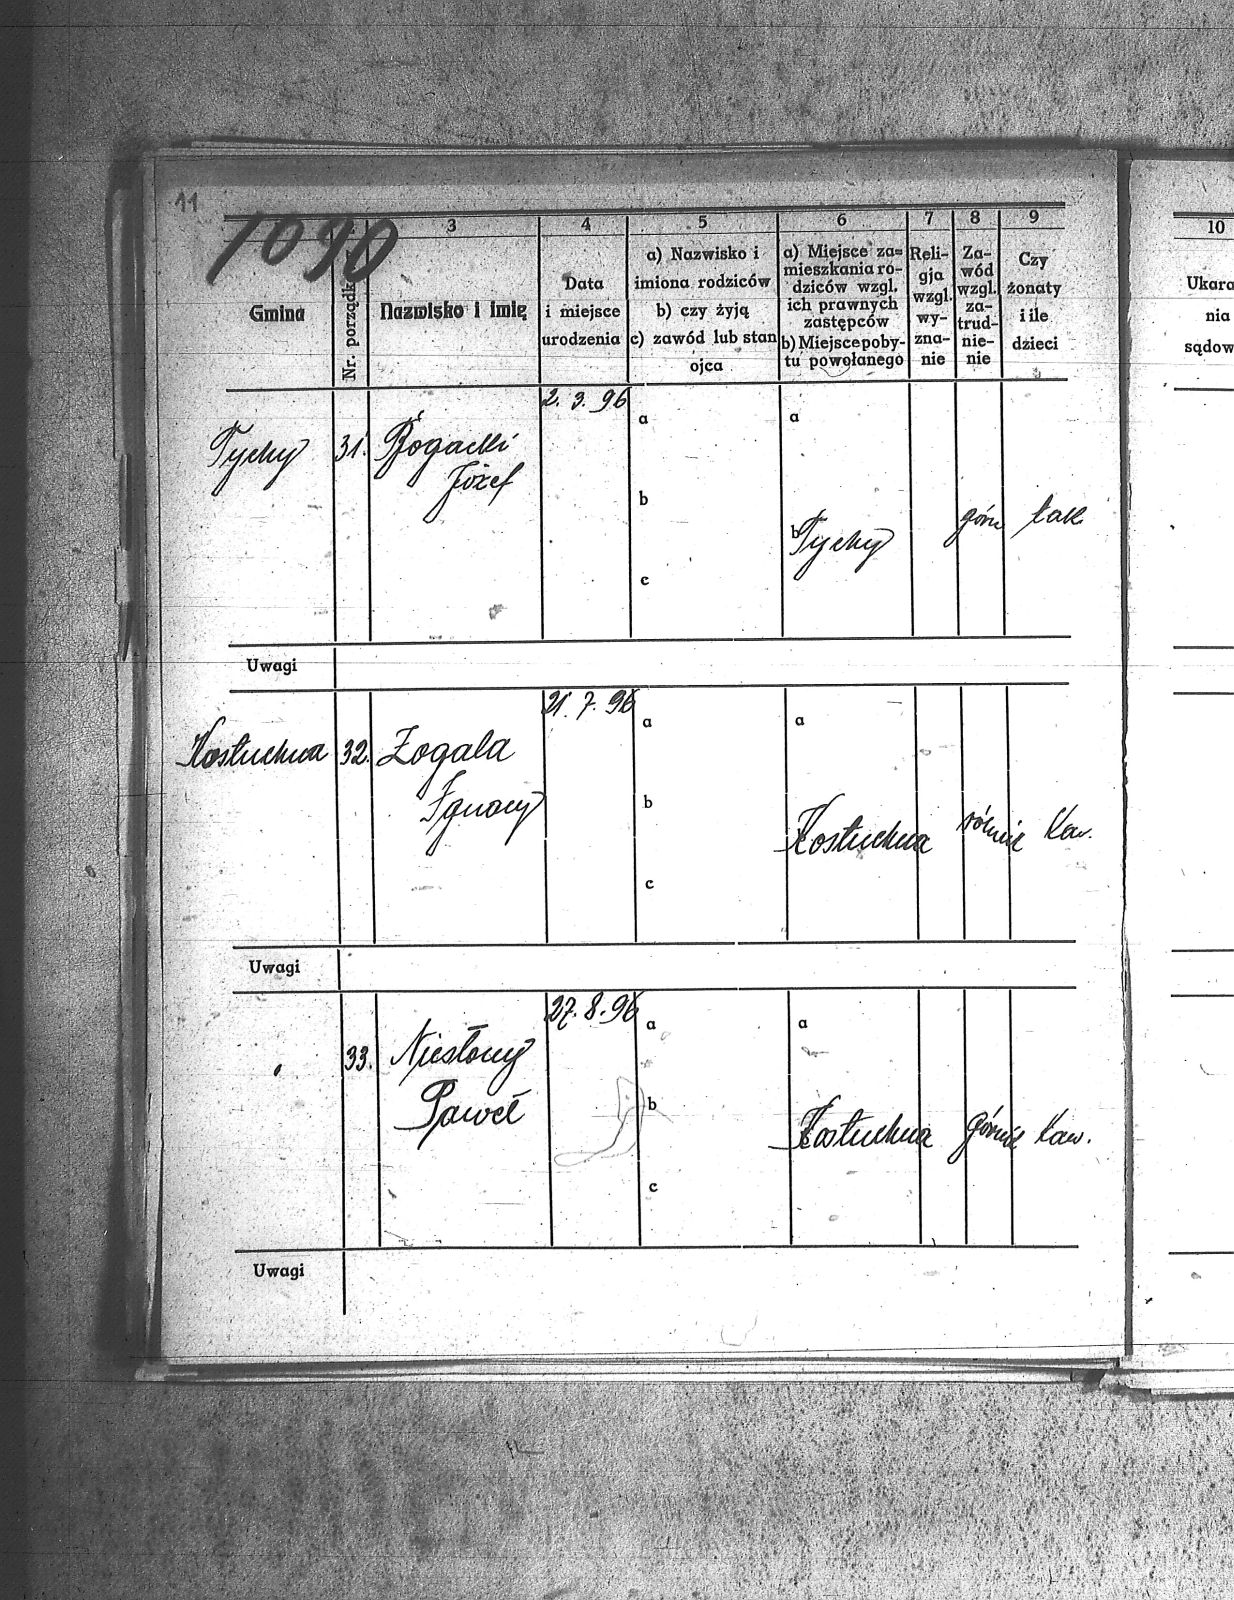 11
1090
3 4 5 6 7 8 9 10
Gmina
Nr. porządk.
Nazwisko i imię
Data
i miejsce
urodzenia
a) Nazwisko i
imiona rodziców
b) czy żyją
c) zawód lub stan
ojca
a) Miejsce za-
mieszkania ro-
dziców wzgl.
ich prawnych
zastępców
b) Miejsce poby-
tu powołanego
Reli-
gja
wzgl.
wy-
zna-
nie
Za-
wód
wzgl.
za-
trud-
nie-
nie
Czy
żonaty
i ile
dzieci
Ukara
nia
sądow
2. 3. 96
Tychy 31. Bogacki
Józef
a a
b b Tychy górn tak
c
Uwagi
21. 7. 96
Kostuchna 32. Zogala
Ignacy
a a
b Kostuchna rolnik kaw.
c
Uwagi
27. 8. 96
33. Niesłony
Paweł
a a
b Kostuchna górnik kaw.
c
Uwagi